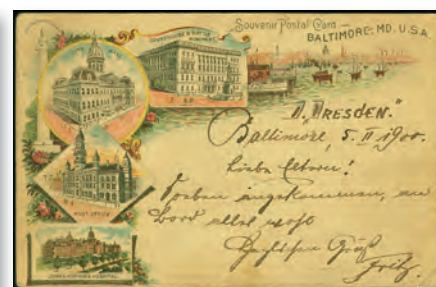 Souvenir Postal Card —
BALTIMORE, MD. U.S.A.
COURTHOUSE & BATTLE
MONUMENT.
D. „DRESDEN."
Baltimore, 5. II 1900.
Liebe Eltern!
Soeben angekommen, an
Bord alles wohl
Herzlichen Gruß
Fritz.
POST OFFICE
JOHNS HOPKINS HOSPITAL